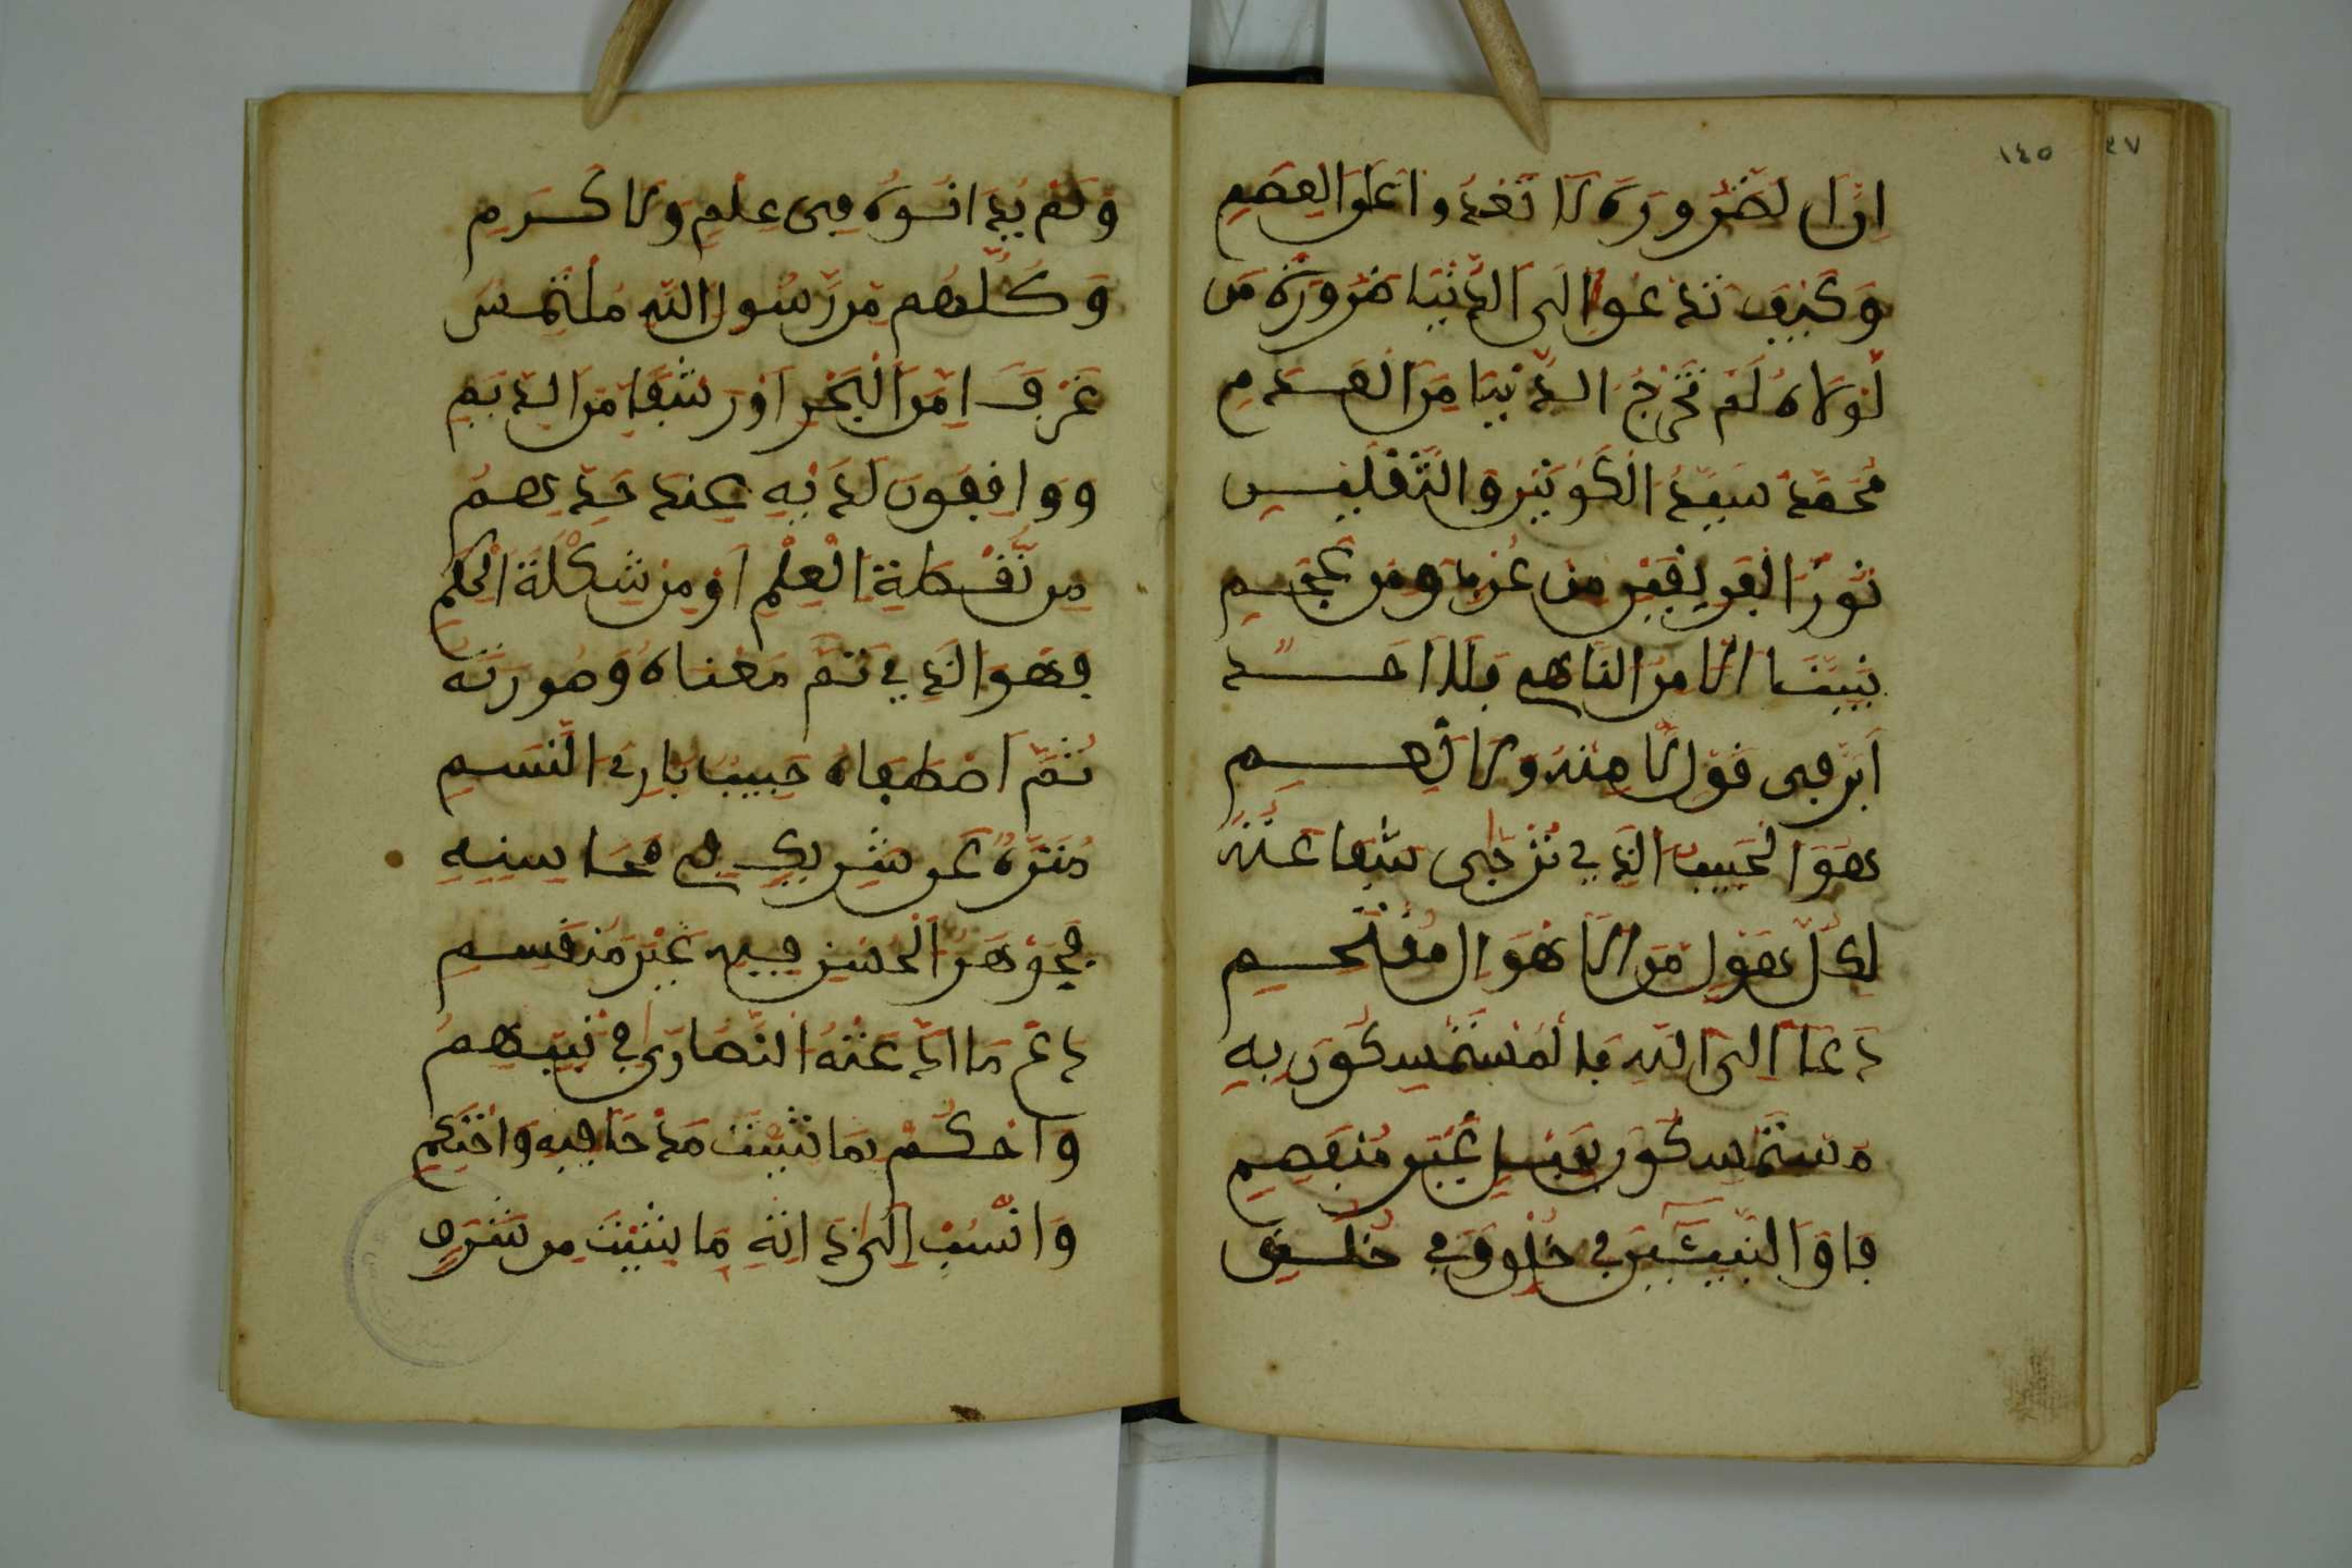 ١٤٥
٤٧
اِنَّ الضَّرُورَةَ لَا تَعْدُوا عَلَى الْعِصَمِ
وَكَيْفَ تَدْعُوا اِلَى الدُّنْيَا ضَرُورَةُ مَن
لَوْلَاهُ لَمْ تَخْرُجِ الدُّنْيَا مِنَ الْعَدَمِ
مُحَمَّدٌ سَيِّدُ الْكَوْنَيْنِ وَالثَّقَلَيْنِ
نُورُ الْفَرِيقَيْنِ مِن عُرْبٍ وَمِن عَجَمِ
نَبِيُّنَا الْاٰمِرُ النَّاهِي فَلَا اَحَدٌ
اَبَرَّ فِي قَوْلِ لَا مِنْهُ وَلَا نَعَمِ
هُوَ الْحَبِيبُ الَّذِي تُرْجَى شَفَاعَتُهُ
لِكُلِّ هَوْلٍ مِّنَ الْاَهْوَالِ مُقْتَحَمِ
دَعَا اِلَى اللهِ فَالْمُسْتَمْسِكُونَ بِهِ
مُسْتَمْسِكُونَ بِحَبْلٍ غَيْرِ مُنْفَصِمِ
فَاقَ النَّبِيِّينَ فِي خَلْقٍ وَفِي خُلُقٍ
وَلَمْ يُدَانُوهُ فِي عِلْمٍ وَلَا كَرَمِ
وَكُلُّهُم مِّن رَّسُولِ اللهِ مُلْتَمِسٌ
غَرْفًا مِّنَ الْبَحْرِ اَوْ رَشْفًا مِّنَ الدِّيَمِ
وَوَاقِفُونَ لَدَيْهِ عِنْدَ حَدِّهِمُ
مِن نُّقْطَةِ الْعِلْمِ اَوْ مِنْ شَكْلَةِ الْحِكَمِ
فَهُوَ الَّذِي تَمَّ مَعْنَاهُ وَصُورَتُهُ
ثُمَّ اصْطَفَاهُ حَبِيبًا بَارِئُ النَّسَمِ
مُنَزَّهٌ عَن شَرِيكٍ فِي مَحَاسِنِهِ
فَجَوْهَرُ الْحُسْنِ فِيهِ غَيْرُ مُنْقَسِمِ
دَعْ مَا ادَّعَتْهُ النَّصَارَى فِي نَبِيِّهِمُ
وَاحْكُمْ بِمَا شِئْتَ مَدْحًا فِيهِ وَاحْتَكِمِ
وَانْسُبْ اِلَى ذَاتِهِ مَا شِئْتَ مِن شَرَفٍ